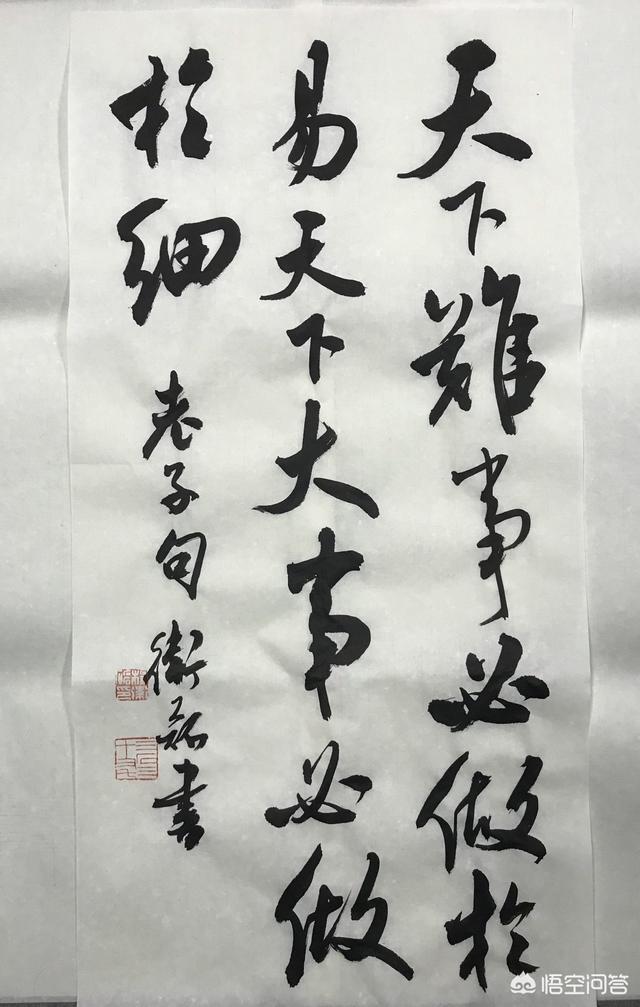 天下難事必做於
易天下大事必做
於細
老子句 衛 書
悟空问答